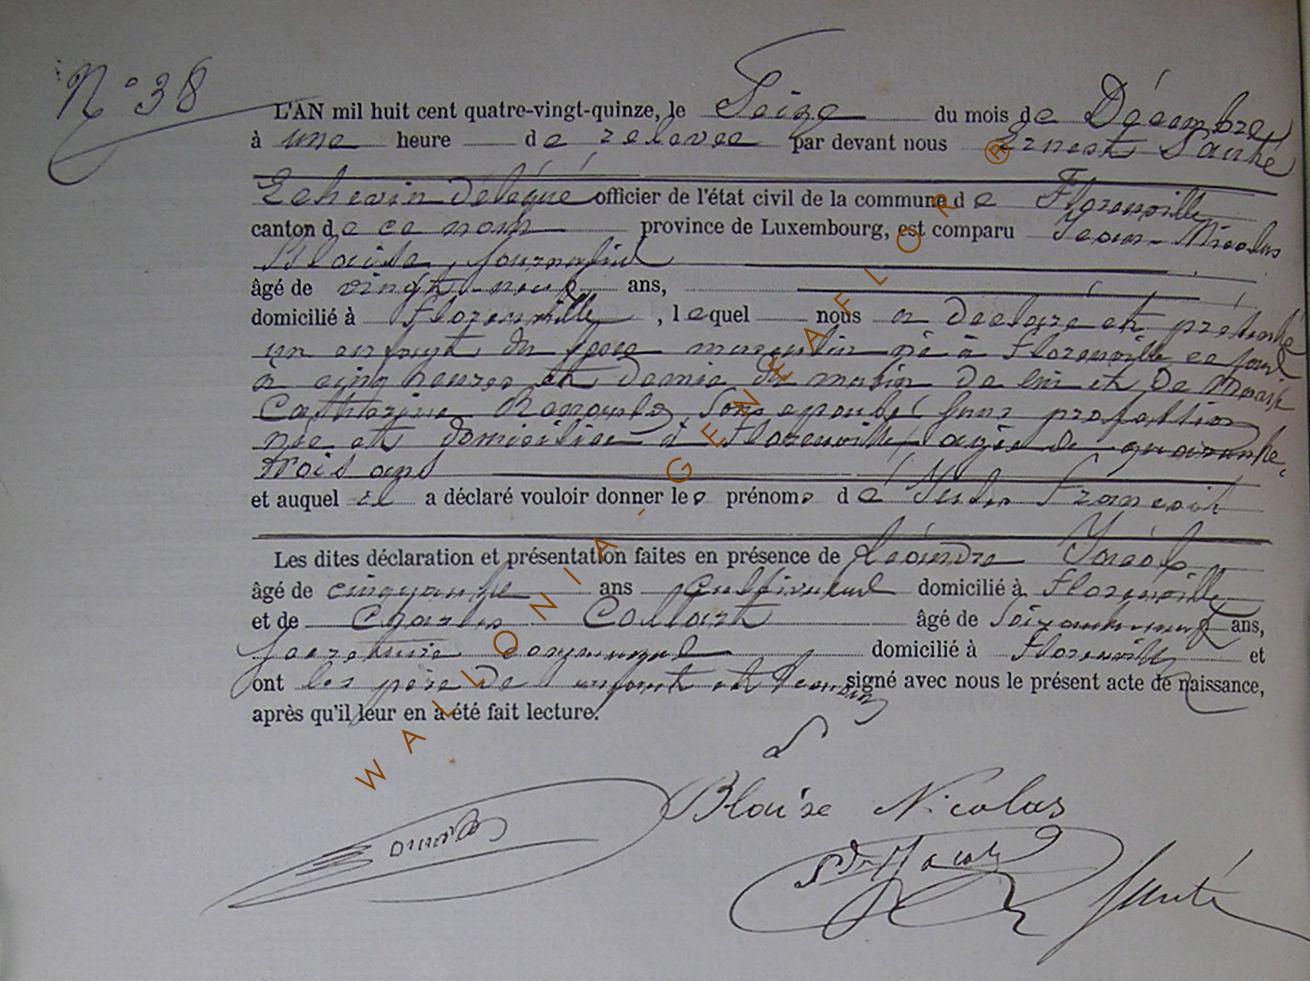 N° 38
L'AN mil huit cent quatre-vingt-quinze, le Seize du mois de Décembre,
à une heure de relevée par devant nous Ernest Santé
Echevin délégué officier de l'état civil de la commune de Florenville
canton de ce nom province de Luxembourg, est comparu Jean-Nicolas
Blaise, journalier
âgé de vingt-neuf ans,
domicilié à Florenville, lequel nous a déclaré et présenté
un enfant du sexe masculin né à Florenville ce jour
à cinq heures et demie du matin de lui et de Marie
Catherine son épouse sans profession
née et domiciliée à Florenville, agée de quarante-
trois ans
et auquel il a déclaré vouloir donner les prénoms de Jules François
Les dites déclaration et présentation faites en présence de
âgé de cinquante ans cultivateur domicilié à Florenville
et de Charles Collart âgé de Soixante-neuf ans,
Secrétaire communal domicilié à Florenville et
ont les père de enfant et témoins signé avec nous le présent acte de naissance,
après qu'il leur en a été fait lecture.
Blaise Nicolas
Santé
WALLONIA-GENEAFLOR®